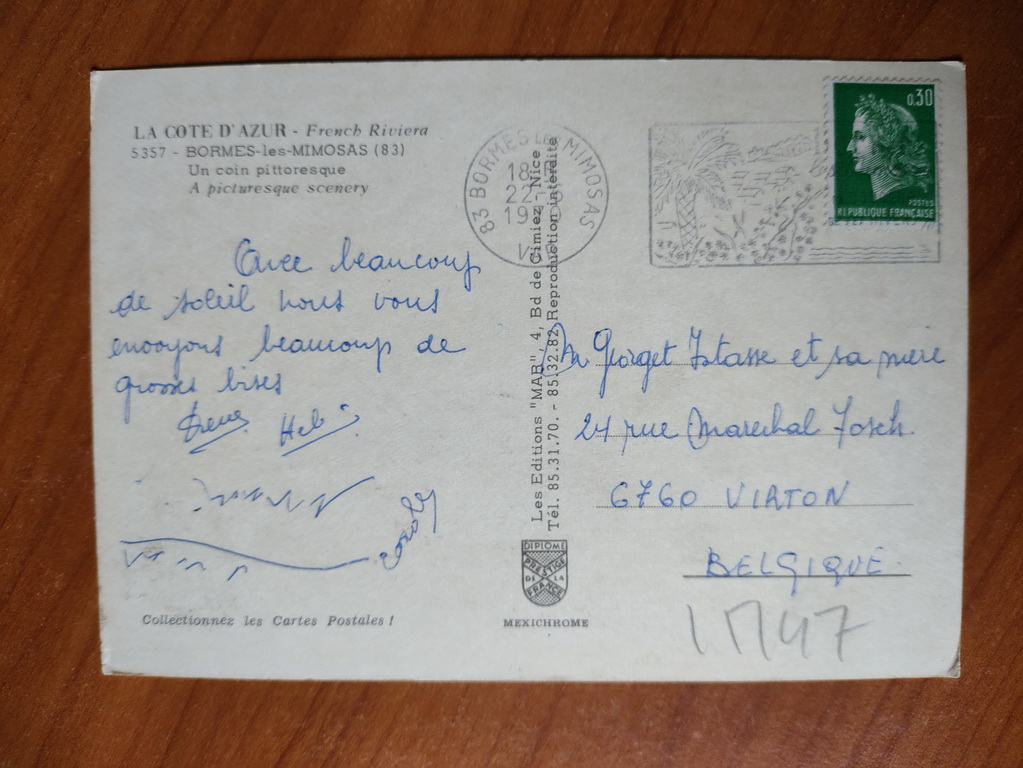 LA COTE D'AZUR - French Riviera
5357 - BORMES-les-MIMOSAS (83)
Un coin pittoresque
A picturesque scenery
Avec beaucoup
de soleil nous vous
envoyons beaucoup de
grosses bises
Collectionnez les Cartes Postales !
83 BORMES LES MIMOSAS
18
22
19
Les Editions "MAB", 4, Bd de Cimiez - Nice
Tél. 85.31.70. - 85.32.82 Reproduction interdite
DIPLOME
PRESTIGE
DE LA
FRANCE
MEXICHROME
0,30
POSTES
REPUBLIQUE FRANÇAISE
Georget Istasse et sa mère
24 rue Marechal Fosch.
6760 VIRTON
BELGIQUE